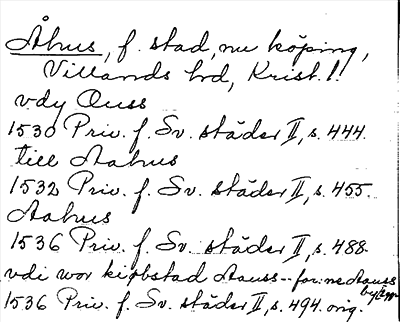 Åhus, f. stad, nu köping,
Villands hd, Krist. l.
vdy Ouss
1530 Priv. f. Sv. städer II, s. 444.
till Aahus
1532 Priv. f. Sv. städer II, s. 455
Aahus
1536 Priv. f. Sv. städer II, s. 488.
vdi wor kiøbstad Aauss -- for:ne Aauss
by
1536 Priv. f. Sv. städer II, s. 494. orig.